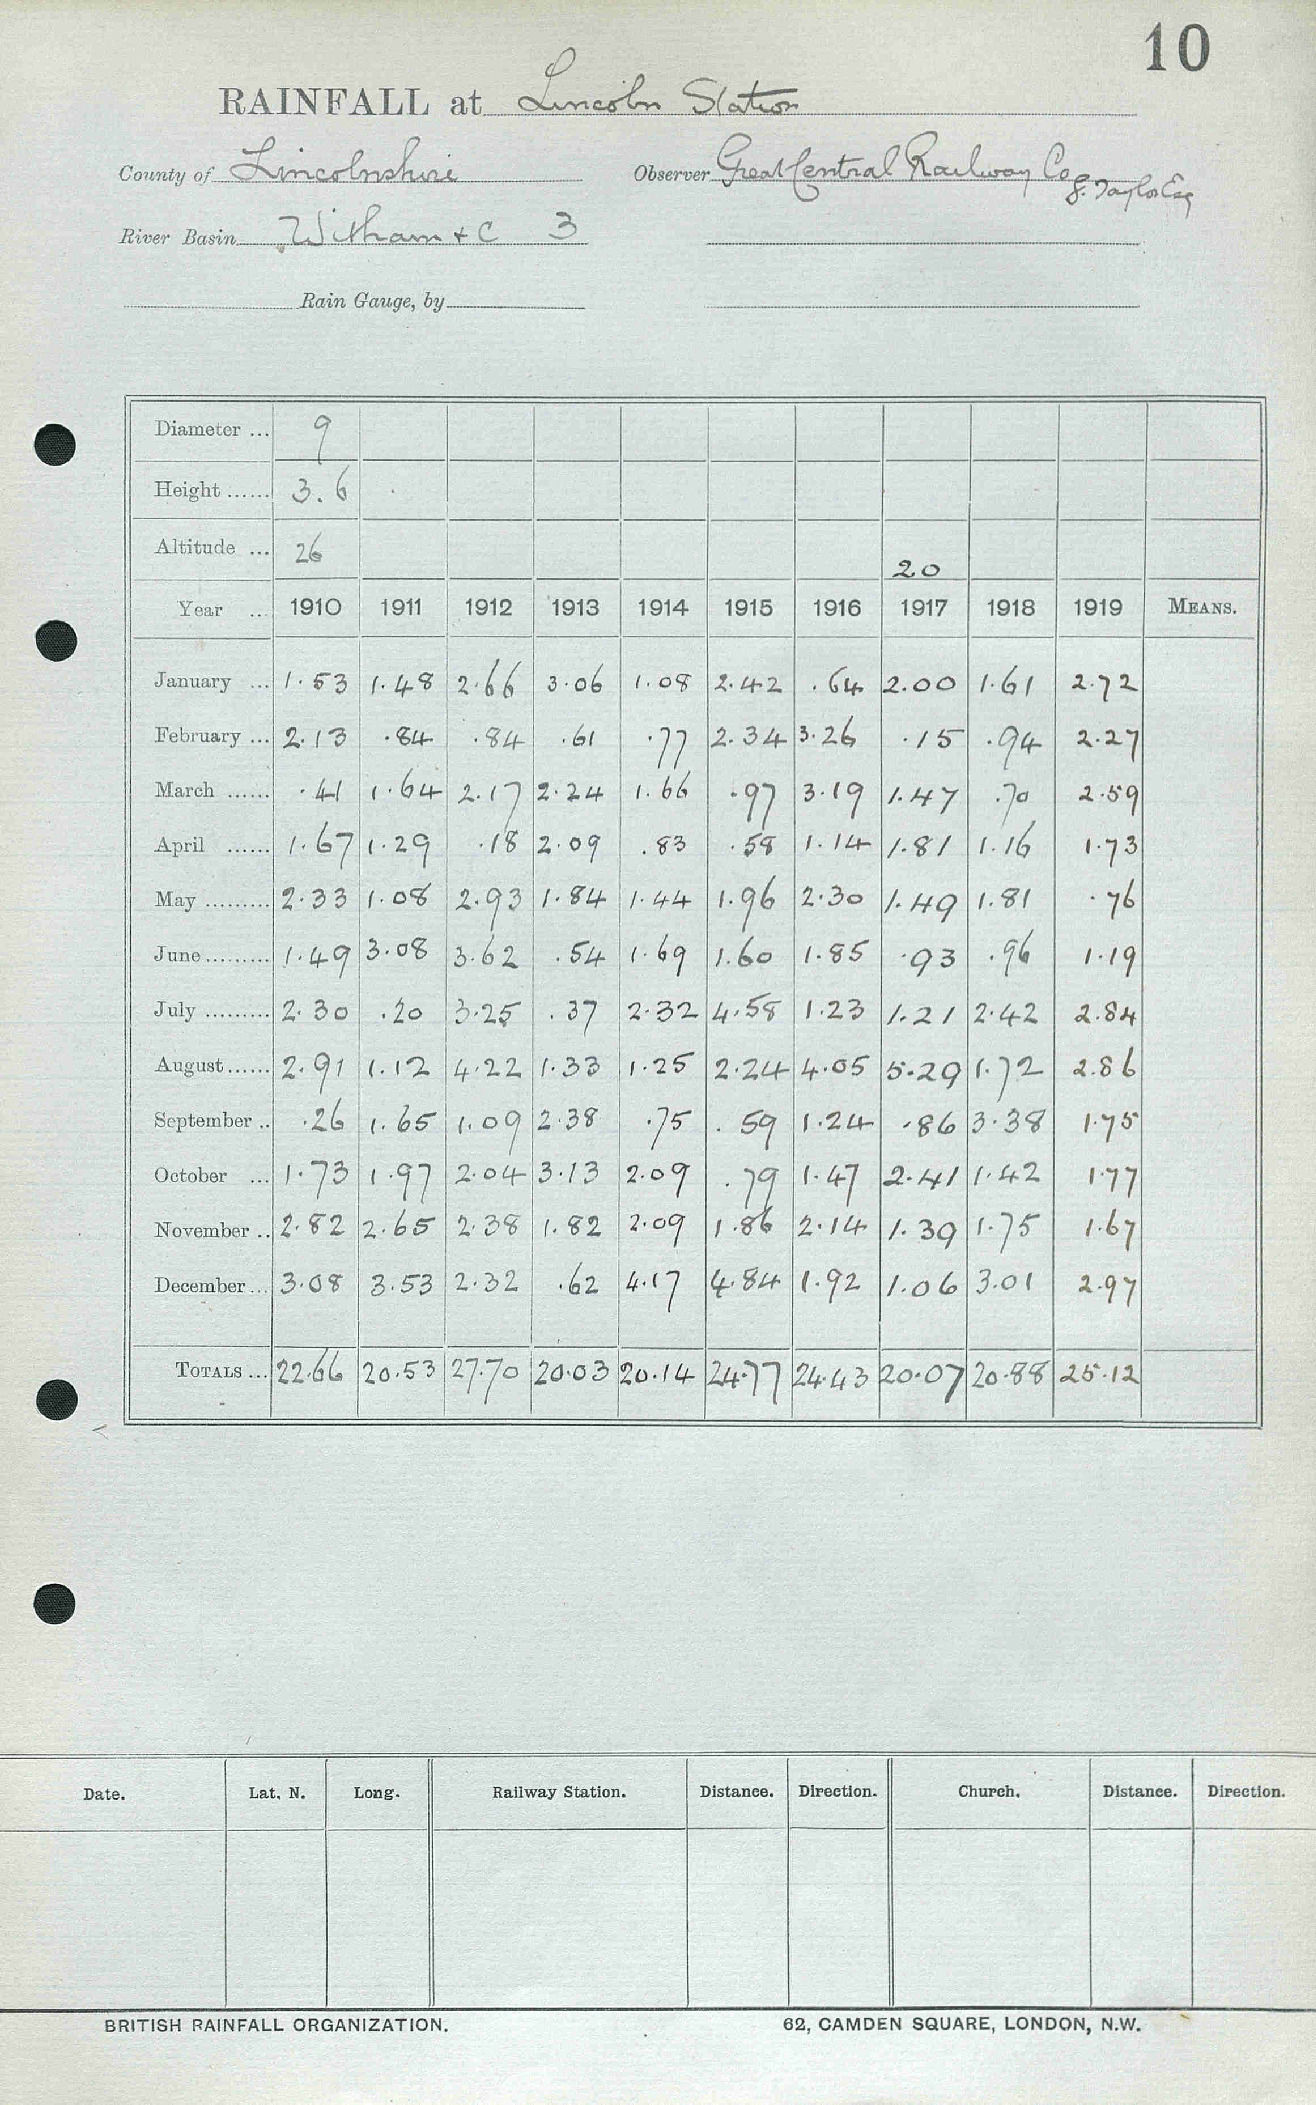 10
RAINFALL at Lincoln Station
County of Lincolnshire Observer Great Central Railway Co
J. Taylor Esq
River Basin Witham + C 3
Rain Gauge, by
Diameter ... 9
Height ...... 3.6
Altitude ... 26 20
Year ... 1910 1911 1912 1913 1914 1915 1916 1917 1918 1919 MEANS.
January ... 1.53 1.48 2.66 3.06 1.08 2.42 .64 2.00 1.61 2.72
February ... 2.13 .84 .84 .61 .77 2.34 3.26 .15 .94 2.27
March ...... .41 1.64 2.17 2.24 1.66 .97 3.19 1.47 .70 2.59
April ...... 1.67 1.29 .18 2.09 .83 .58 1.14 1.81 1.16 1.73
May ......... 2.33 1.08 2.93 1.84 1.44 1.96 2.30 1.49 1.81 .76
June ......... 1.49 3.08 3.62 .54 1.69 1.60 1.85 .93 .96 1.19
July ......... 2.30 .20 3.25 .37 2.32 4.58 1.23 1.21 2.42 2.84
August ...... 2.91 1.12 4.22 1.33 1.25 2.24 4.05 5.29 1.72 2.86
September .. .26 1.65 1.09 2.38 .75 .59 1.24 .86 3.38 1.75
October ... 1.73 1.97 2.04 3.13 2.09 .79 1.47 2.41 1.42 1.77
November .. 2.82 2.65 2.38 1.82 2.09 1.86 2.14 1.39 1.75 1.67
December ... 3.08 3.53 2.32 .62 4.17 4.84 1.92 1.06 3.01 2.97
TOTALS ... 22.66 20.53 27.70 20.03 20.14 24.77 24.43 20.07 20.88 25.12
Date. Lat. N. Long. Railway Station. Distance. Direction. Church. Distance. Direction.
BRITISH RAINFALL ORGANIZATION. 62, CAMDEN SQUARE, LONDON, N.W.